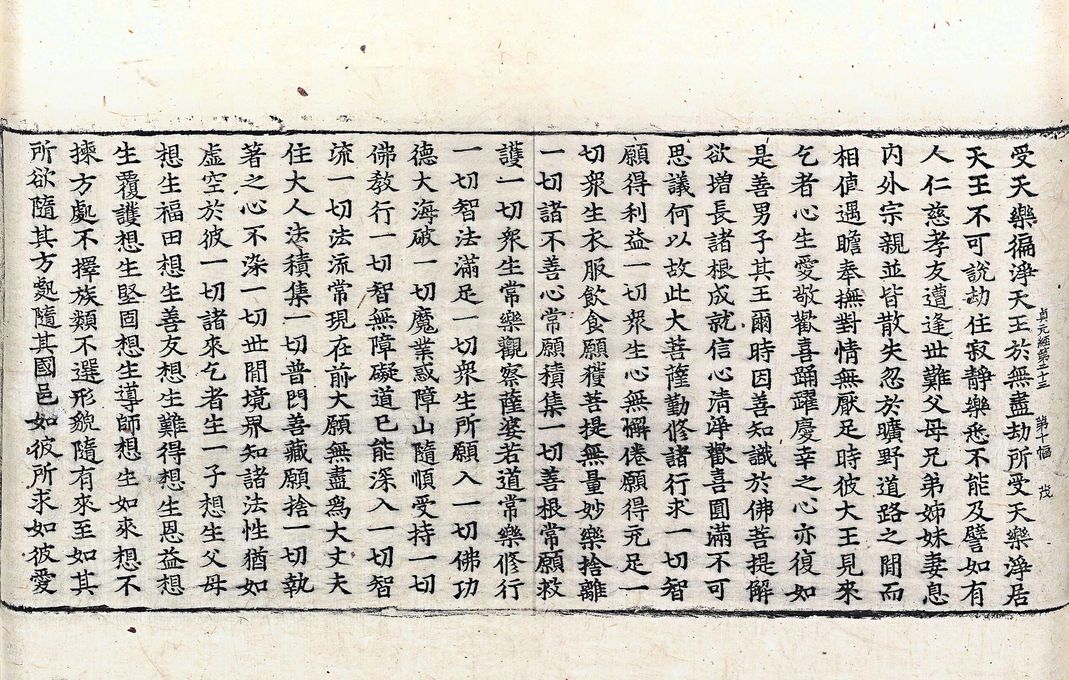 受天樂徧淨天王於無盡劫所受天樂淨居
天王不可說劫住寂靜樂悉不能及譬如有
人仁慈孝友遭逢世難父母兄弟姊妹妻息
內外宗親並皆散失忽於曠野道路之間而
相值遇瞻奉撫對情無厭足時彼大王見來
乞者心生愛敬歡喜踊躍慶幸之心亦復如
是善男子其王爾時因善知識於佛菩提解
欲增長諸根成就信心清淨歡喜圓滿不可
思議何以故此大菩薩勤修諸行求一切智
願得利益一切衆生心無懈倦願得充足一
切衆生衣服飲食願獲菩提無量妙樂捨離
一切諸不善心常願積集一切善根常願救
護一切衆生常樂觀察薩婆若道常樂修行
一切智法滿足一切衆生所願入一切佛功
德大海破一切魔業惑障山隨順受持一切
佛教行一切智無障礙道已能深入一切智
流一切法流常現在前大願無盡爲大丈夫
住大人法積集一切普門善藏願捨一切執
著之心不染一切世間境界知諸法性猶如
虛空於彼一切諸來乞者生一子想生父母
想生福田想生善友想生難得想生恩益想
生覆護想生堅固想生導師想生如來想不
揀方處不擇族類不選形貌隨有來至如其
所欲隨其方處隨其國邑如彼所求如彼愛
貞元經第十三 第十幅 茂